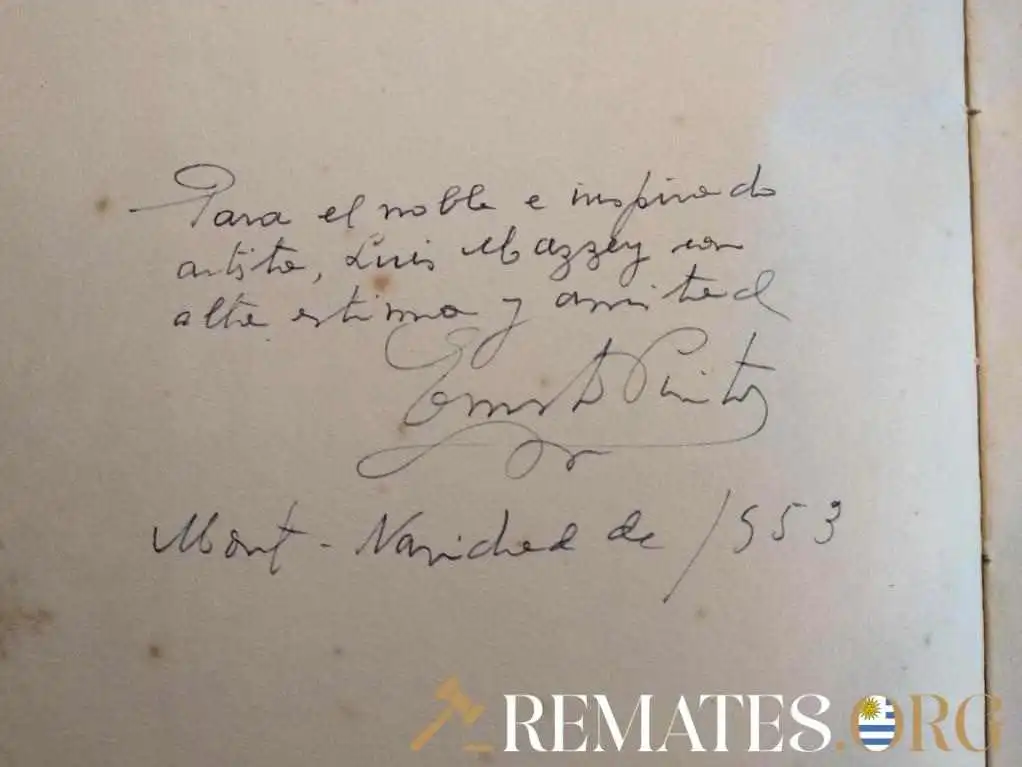 Para el noble e inspirado
artista, Luis Mazzey con
alta estima y amistad
Ernesto Pinto
Mont - Navidad de 1953
REMATES.ORG